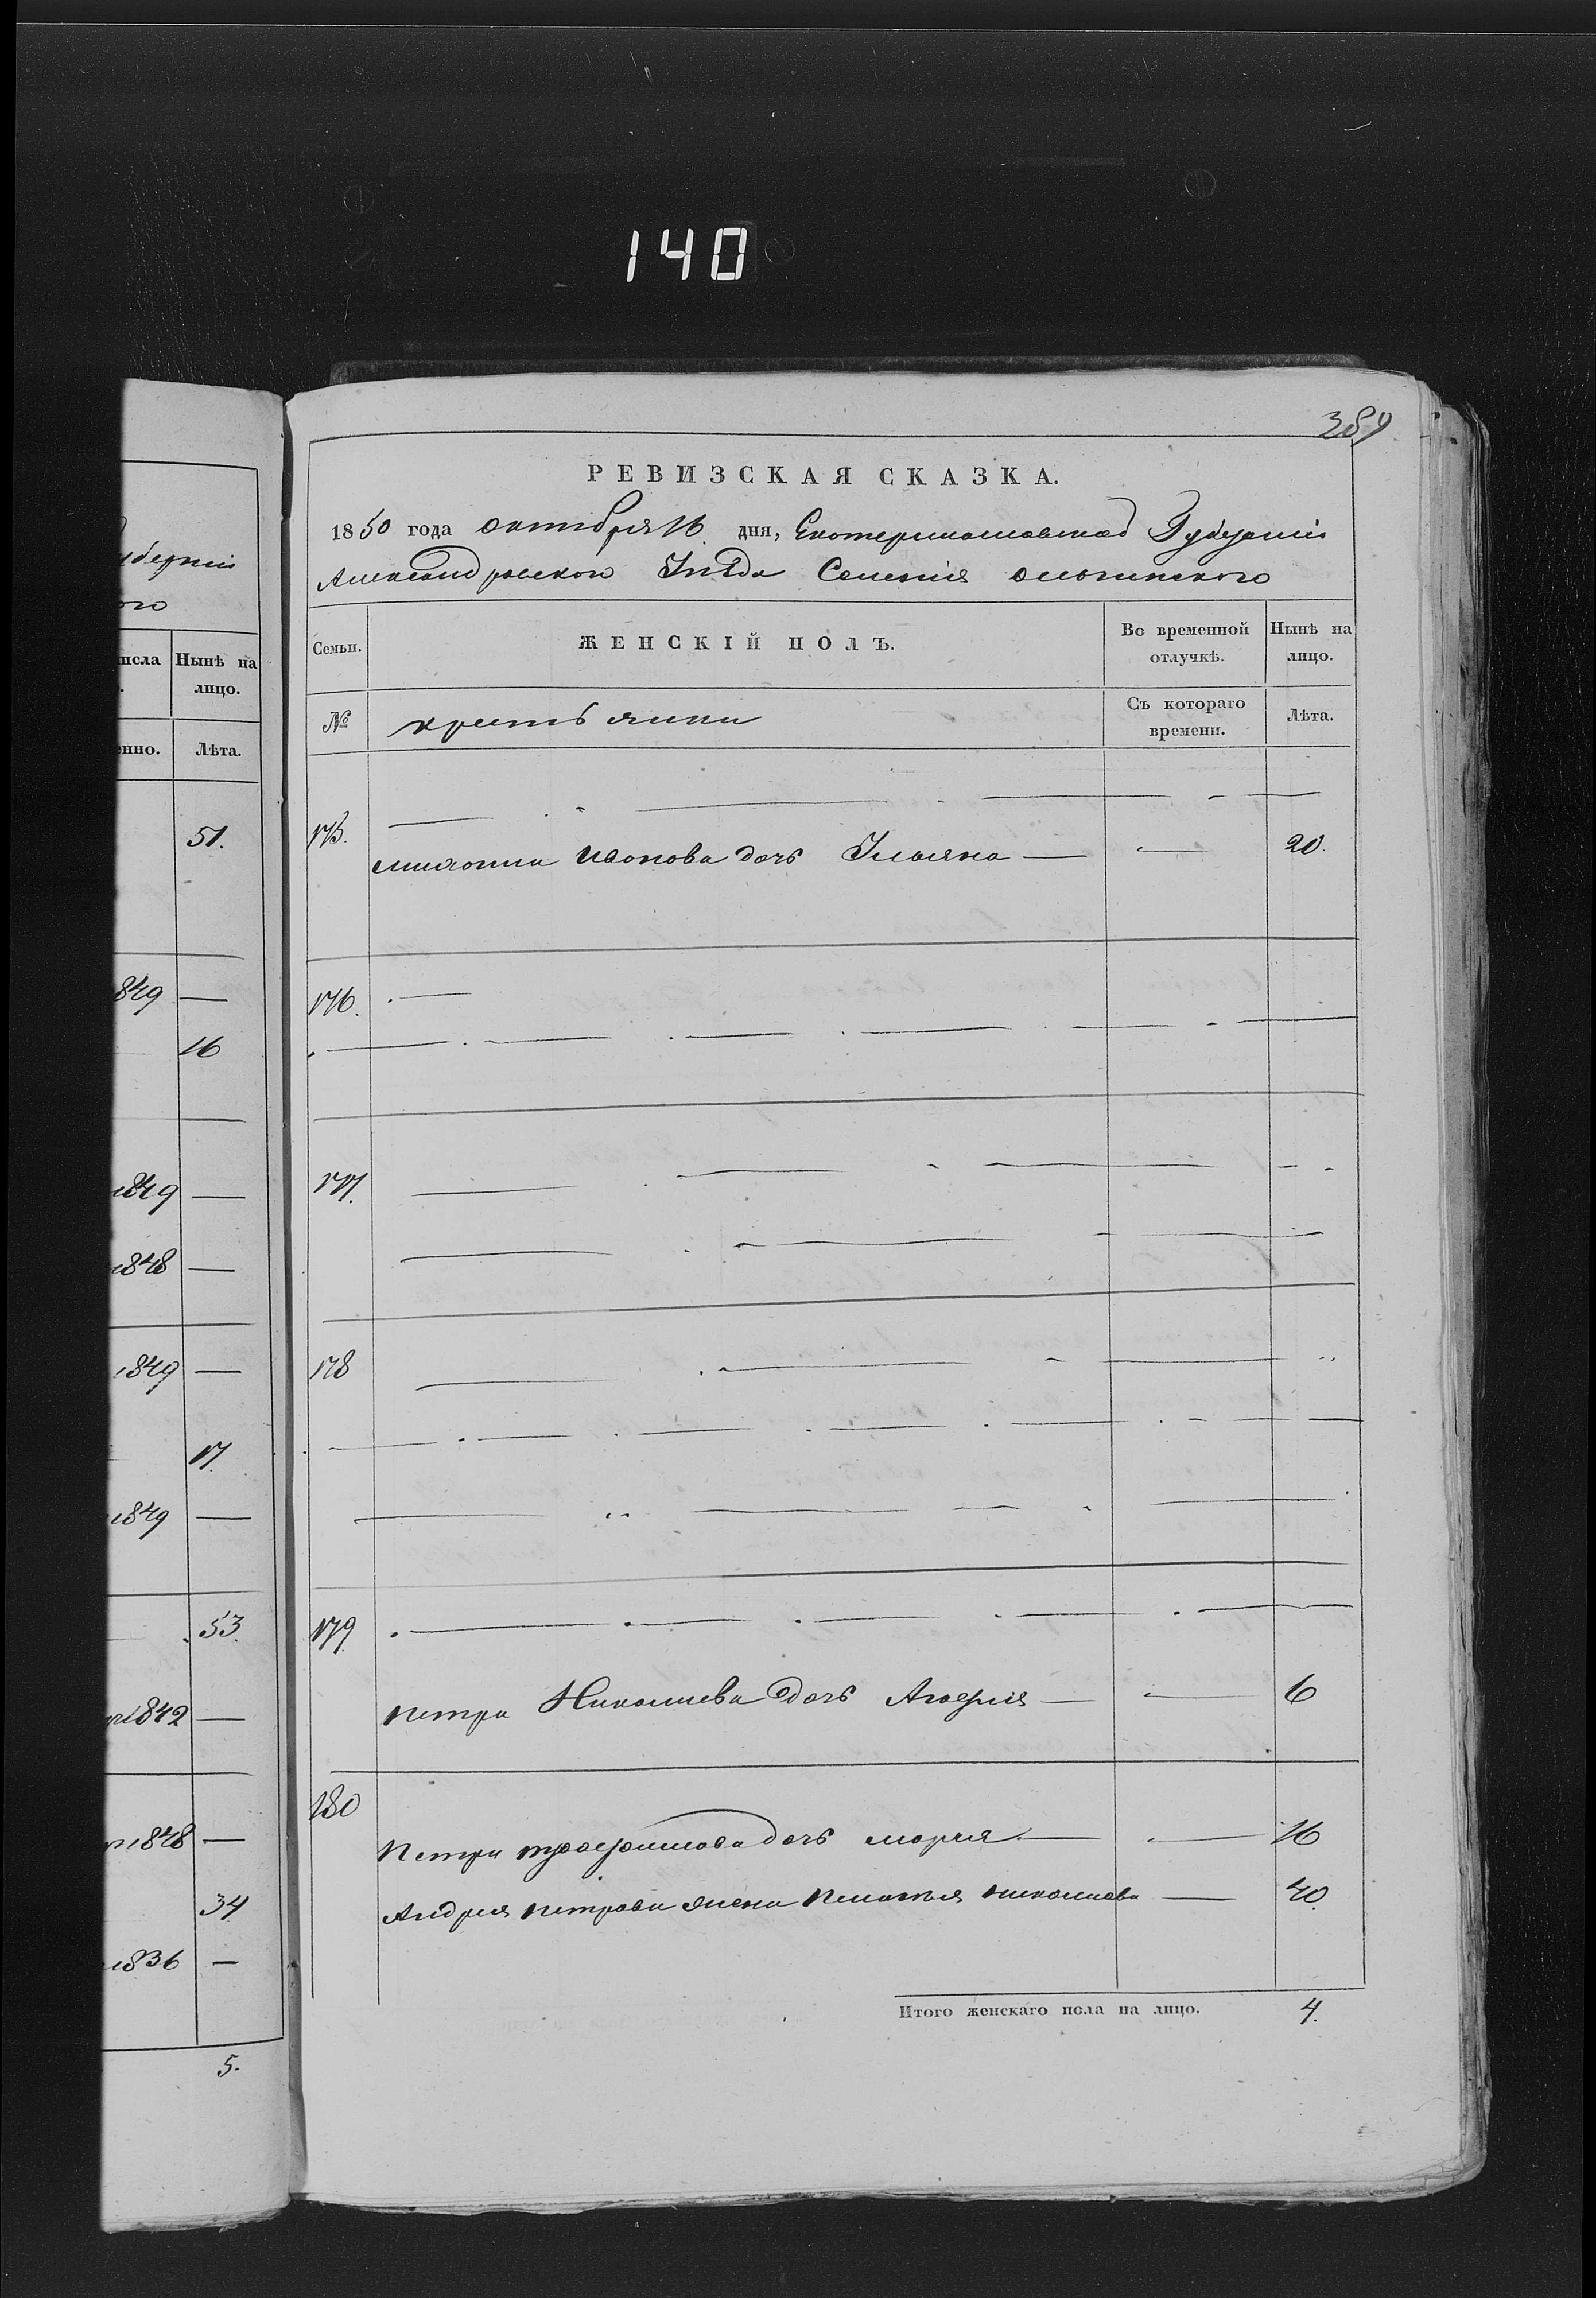 140
389
РЕВИЗСКАЯ СКАЗКА.
1850 года октября 16 дня, Екатеринославской Губернiи
Александровского Уѣзда Селенiя ольгинского
уберніи
ого
исла Нынѣ на лицо.
енно. Лѣта.
51.
849 —
16
1849 —
1848 —
1849 —
17.
1849 —
53.
1842 —
1848 —
34
1836 —
5.
Семьи. ЖЕНСКІЙ ПОЛЪ. Во временной отлучкѣ. Нынѣ на лицо.
№ крестьянки Съ котораго времени. Лѣта.
175. Иванова дочь Ульяна — — 20.
176.
177.
178
179
петра Николаева дочь — — 6
180
Петра трофимова дочь марья — — 16
Андрея петрова жена Пелагѣя николаева — 40.
Итого женскаго пола на лицо. 4.